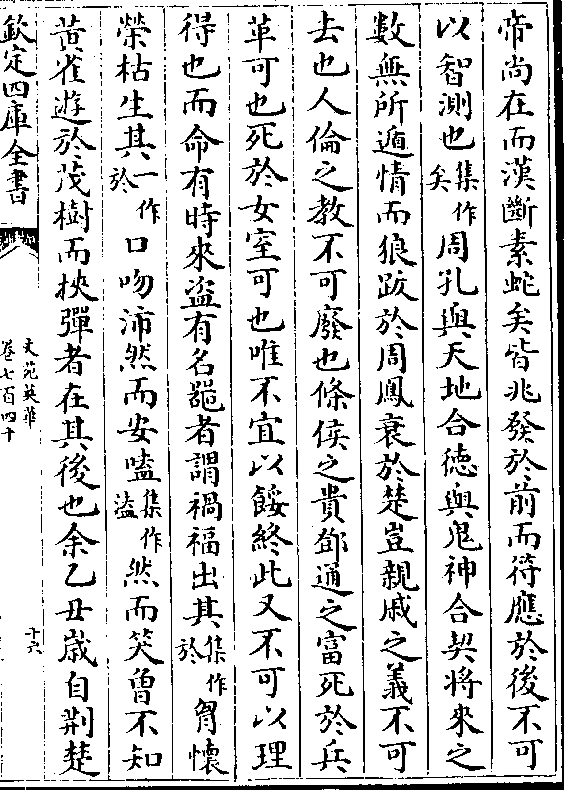 帝尚在而漢斷素蛇矣皆兆發於前而符應於後不可
以智測也集作矣周孔與天地合徳與鬼神合契將來之
數無所遁情而狼跋於周鳳衰於楚豈親戚之義不可
去也人倫之教不可廢也條侯之貴鄧通之富死於兵
革可也死於女室可也唯不宜以餒終此又不可以理
得也而命有時來盜有名器者謂禍福出其集作於胷懷
榮枯生其一作於口吻沛然而安嗑集作溘然而笑曾不知
黄雀遊於茂樹而挾彈者在其後也余乙丑歳自荆楚
欽定四庫全書
文苑英華
卷七百四十
十六